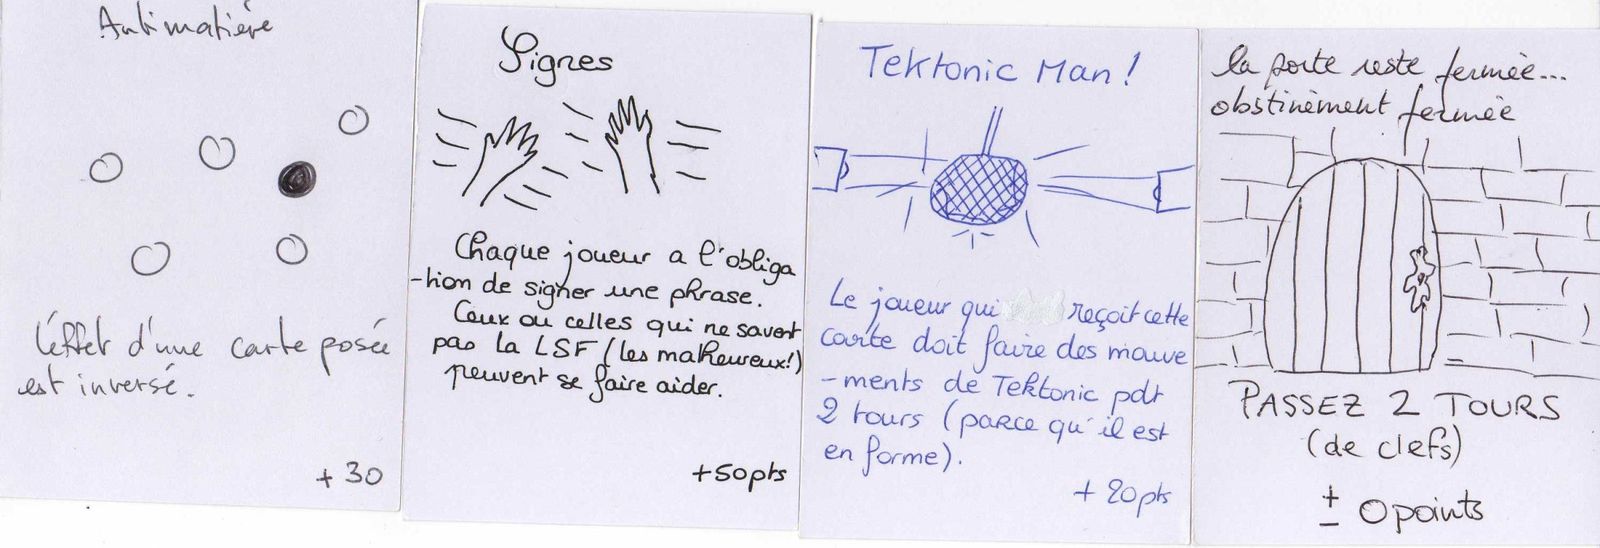 Antimatière
L'éffet d'une carte posée
est inversé.
+30
Signes
Chaque joueur a l'obliga
-tion de signer une phrase.
Ceux ou celles qui ne savent
pas la LSF (les malheureux!)
peuvent se faire aider.
+50pts
Tektonic Man!
Le joueur qui reçoit cette
carte doit faire des mouve
-ments de Tektonic pdt
2 tours (parce qu'il est
en forme).
+20pts
la porte reste fermée...
obstinément fermée
PASSEZ 2 TOURS
(de clefs)
± 0points